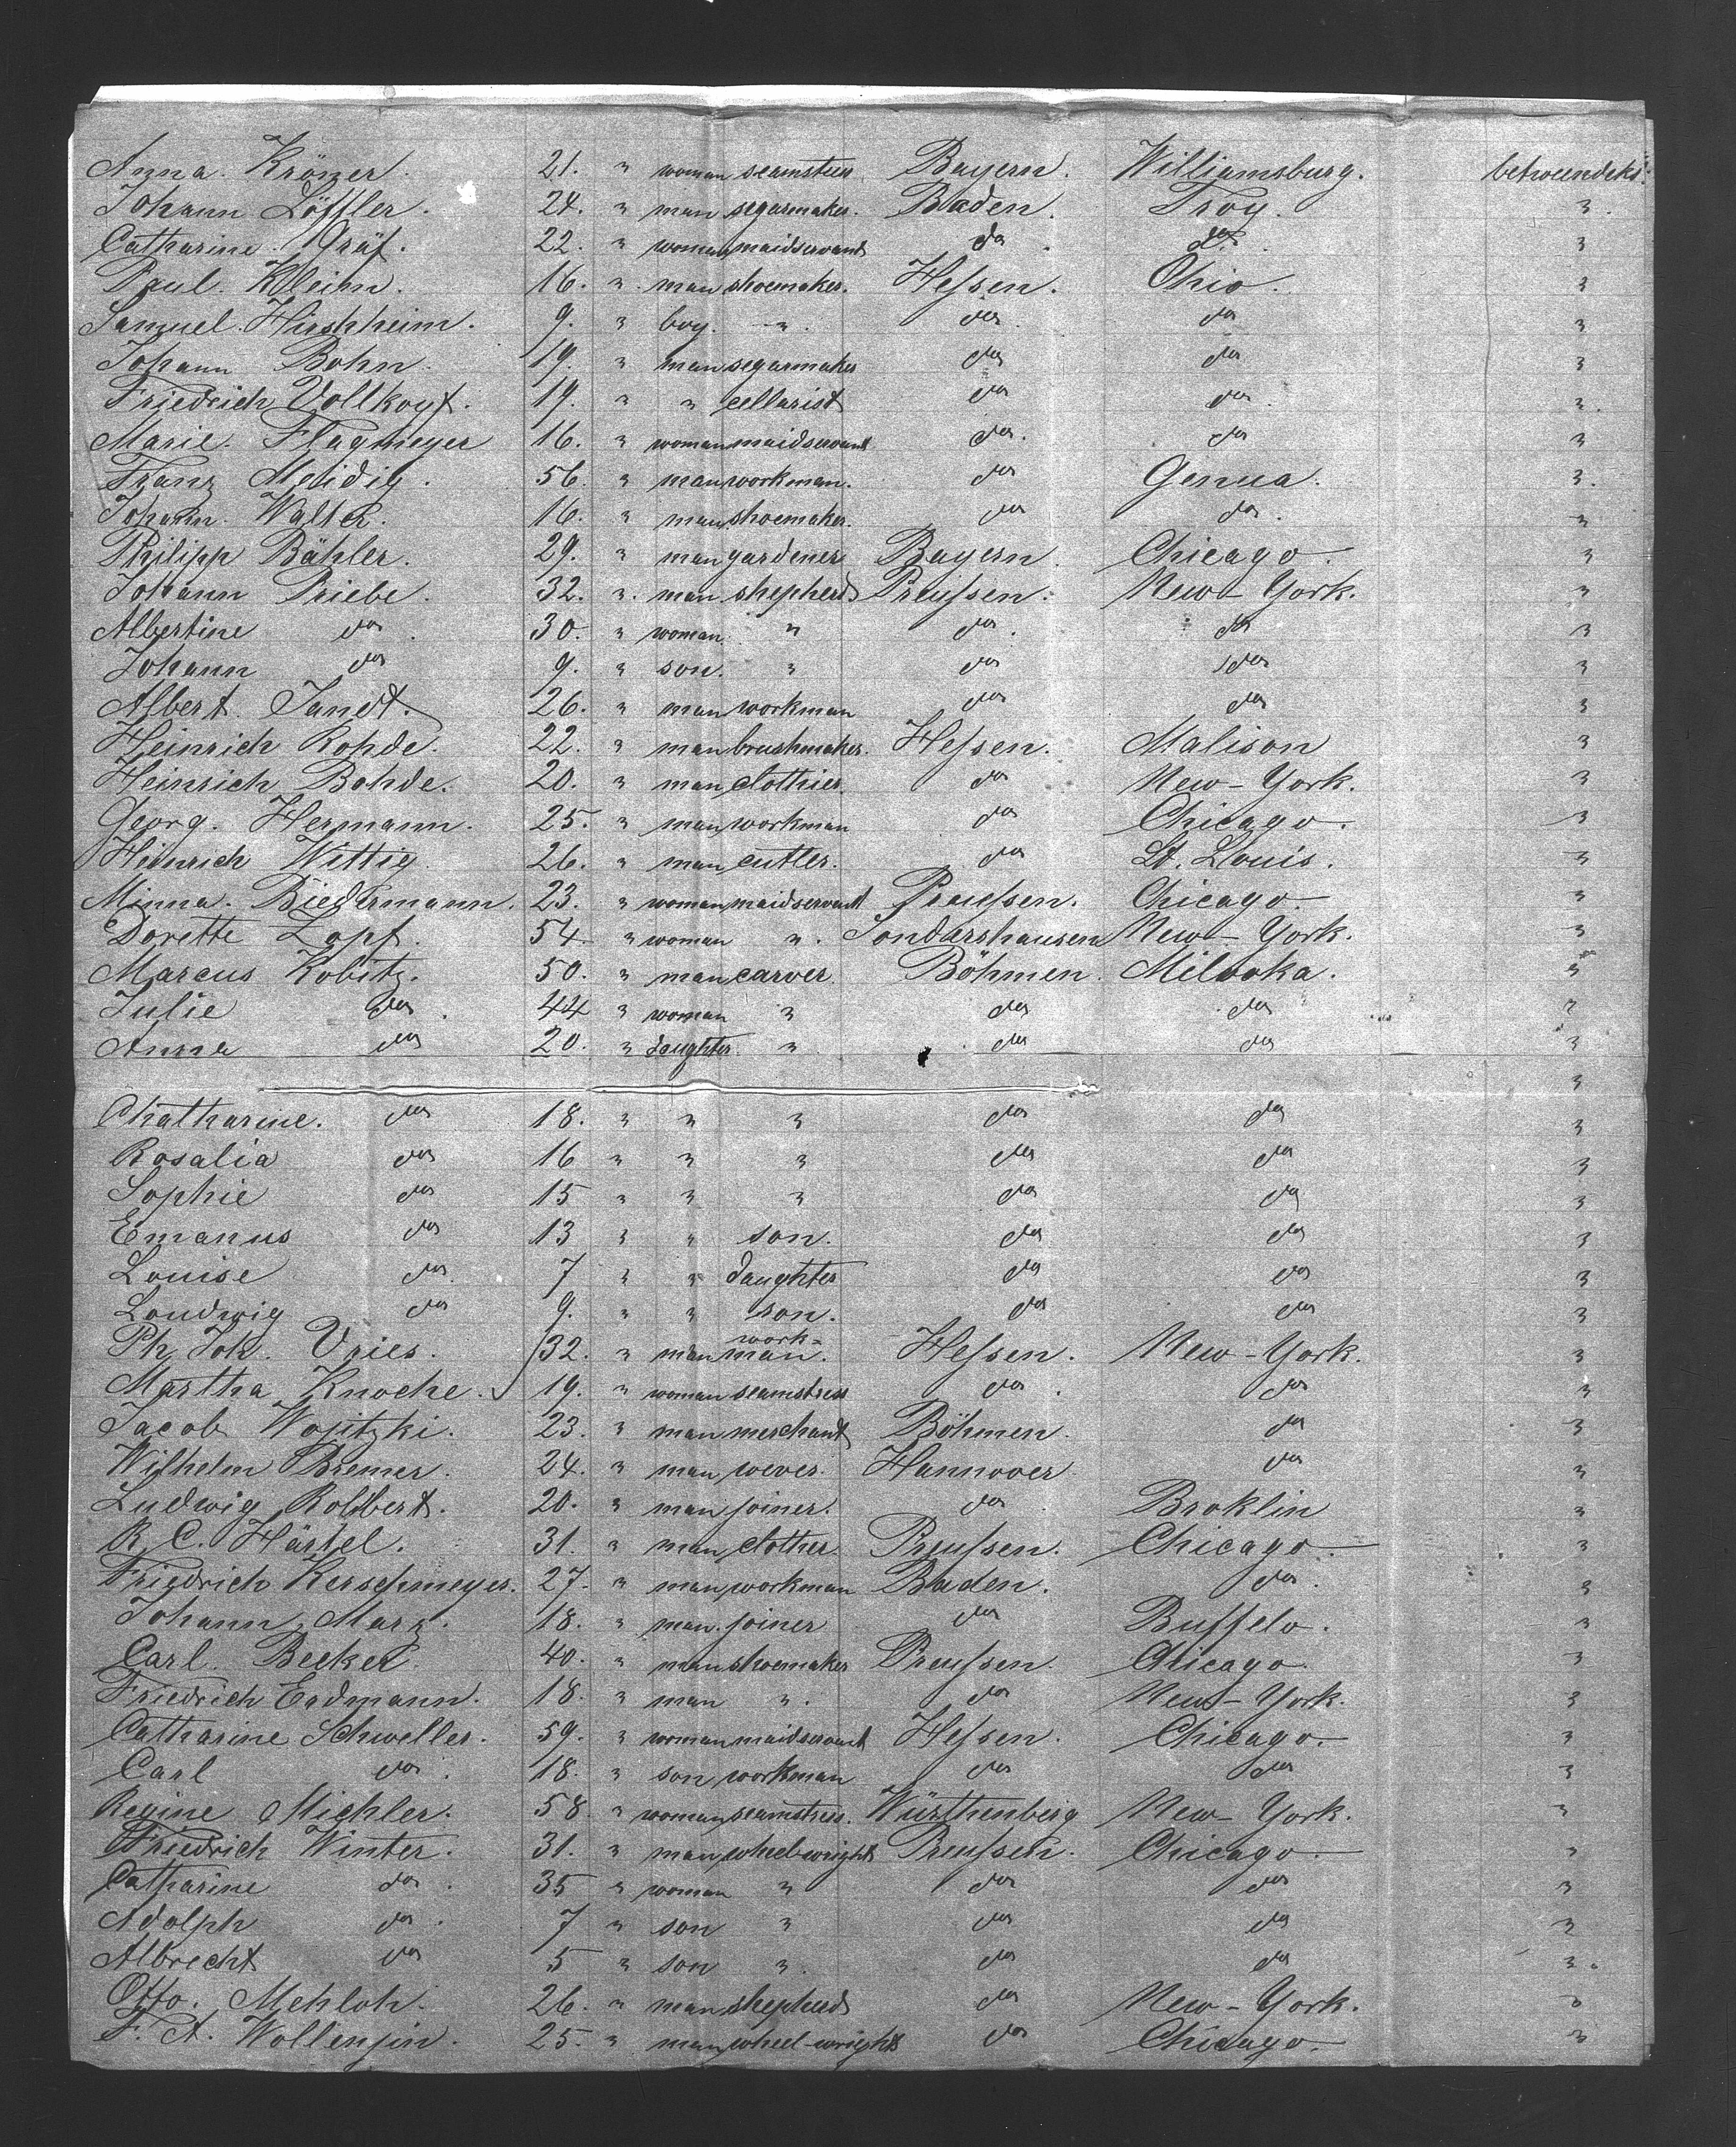 Anna. Kröner. 21. " woman seamstress Bayern. Williamsburg. betweendeks.
Johann Löffler. 24. " man segarmaker. Baden. Troy. "
Catharine. Gräf. 22. " woman maidservant do do "
Paul. Kleim. 16. " man shoemaker. Hessen. Ohio. "
Samuel. Hirshheim. 9. " boy. " do do "
Johann Bohn. 19. " man segarmaker do do "
Friedrich Vollkopf. 19. " " cellarist do do "
Marie. Flagmeyer 16. " woman maidservant do do "
Franz Meidig. 56. " man workman. do Genua. "
Johann. Walter. 16. " man shoemaker. do do "
Philipp Bähler. 29. " man gardener Bayern. Chicago. "
Johann Priebe. 32. " man shepherd Preussen. New-York. "
Albertine do 30. " woman " do do "
Johann do 9. " son. " do do "
Albert Jandt. 26. " man workman do do "
Heinrich Rohde. 22. " man brushmaker. Hessen. Malison "
Heinrich Bohde. 20. " man clothier. do New-York. "
Georg. Hermann. 25. " man workman do Chicago. "
Heinrich Wittig 26. " man cutler. do St. Louis. "
Minna. Biedermann. 23. " woman maidservant Preussen. Chicago. "
Dorette Zopf. 54. " woman " Sondarshausen New-York. "
Marcus Kobitz. 50. " man carver. Böhmen. Milwoka. "
Julie do 44 " woman " do do "
Anna do 20. " daughter. " do do "
"
Chatharine. do 18. " " " do do "
Rosalia do 16 " " " do do "
Sophie do 15 " " " do do "
Emanus do 13 " " son. do do "
Louise do 7 " " daughter do do "
Loudwig do 9. " " son. do do "
Ph. Joh. Vries. 32. " man work-man. Hessen. New-York. "
Martha Knoche. 19. " woman seamstress do do "
Jacob Wojitzki. 23. " man merchant Böhmen. do "
Wilhelm Bremer. 24. " man wever. Hannover do "
Ludwig Robbert. 20. " man joiner. do Broklin "
R. C. Härtel. 31. " man clother. Preussen. Chicago. "
Friedrich Kerschmeyer. 27. " man workman Baden. do "
Johann Marz. 18. " man. joiner do Buffelo. "
Carl. Becker 40. " man shoemaker Preussen. Chicago. "
Friedrich Erdmann. 18. " man " do New-York. "
Catharine Schweller. 59. " woman maidservant Hessen. Chicago. "
Carl do 18. " son workman do do "
Regine Michler. 58 " woman seamstress. Würthenberg New-York. "
Friedrich Winter. 31. " man wheelwright Preussen. Chicago. "
Catharine do 35 " woman " do do "
Adolph do 7 " son " do do "
Albrecht do 5 " son " do do "
Otto. Mehloh. 26. " man shepherd do New-York. "
F. A. Wollenjin. 25. " man wheel-wright do Chicago. "